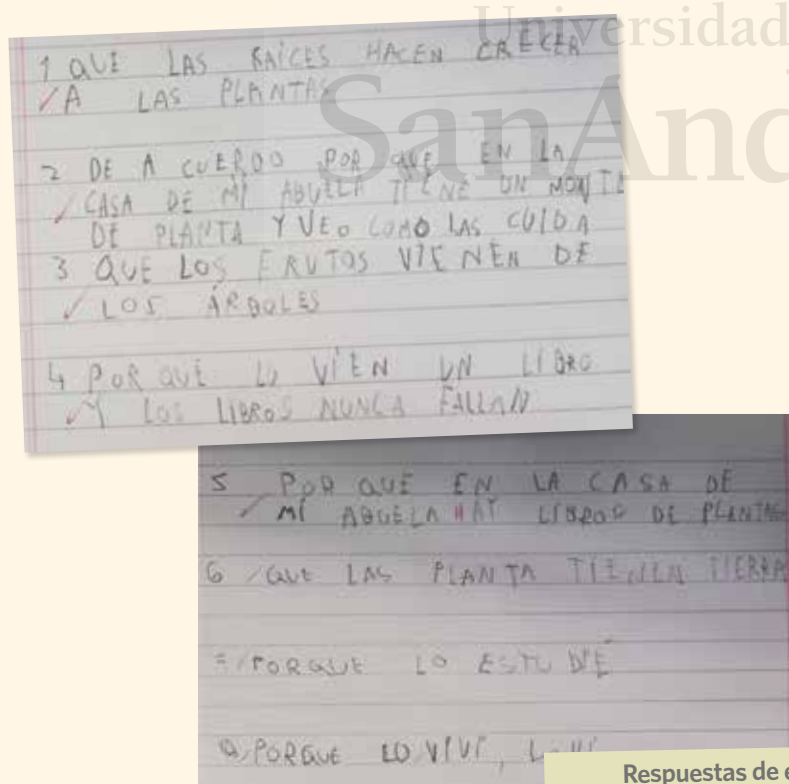 Universidad
SanAnd
1 QUE LAS RAÍCES HACEN CRECER
A LAS PLANTAS
2 DE A CUERDO POR QUE EN LA
CASA DE MI ABUELA TIENE UN MONTE
DE PLANTA Y VEO COMO LAS CUIDA
3 QUE LOS FRUTOS VIENEN DE
LOS ÁRBOLES
4 POR QUE LO VI EN UN LIBRO
Y LOS LIBROS NUNCA FALLAN
5 POR QUE EN LA CASA DE
MÍ ABUELA HAY LIBROS DE PLANTAS
6 QUE LAS PLANTA TIENEN TIERRA
PORQUE LO ESTUDIÉ
PORQUE LO VIVÍ, LO VI
Respuestas de e